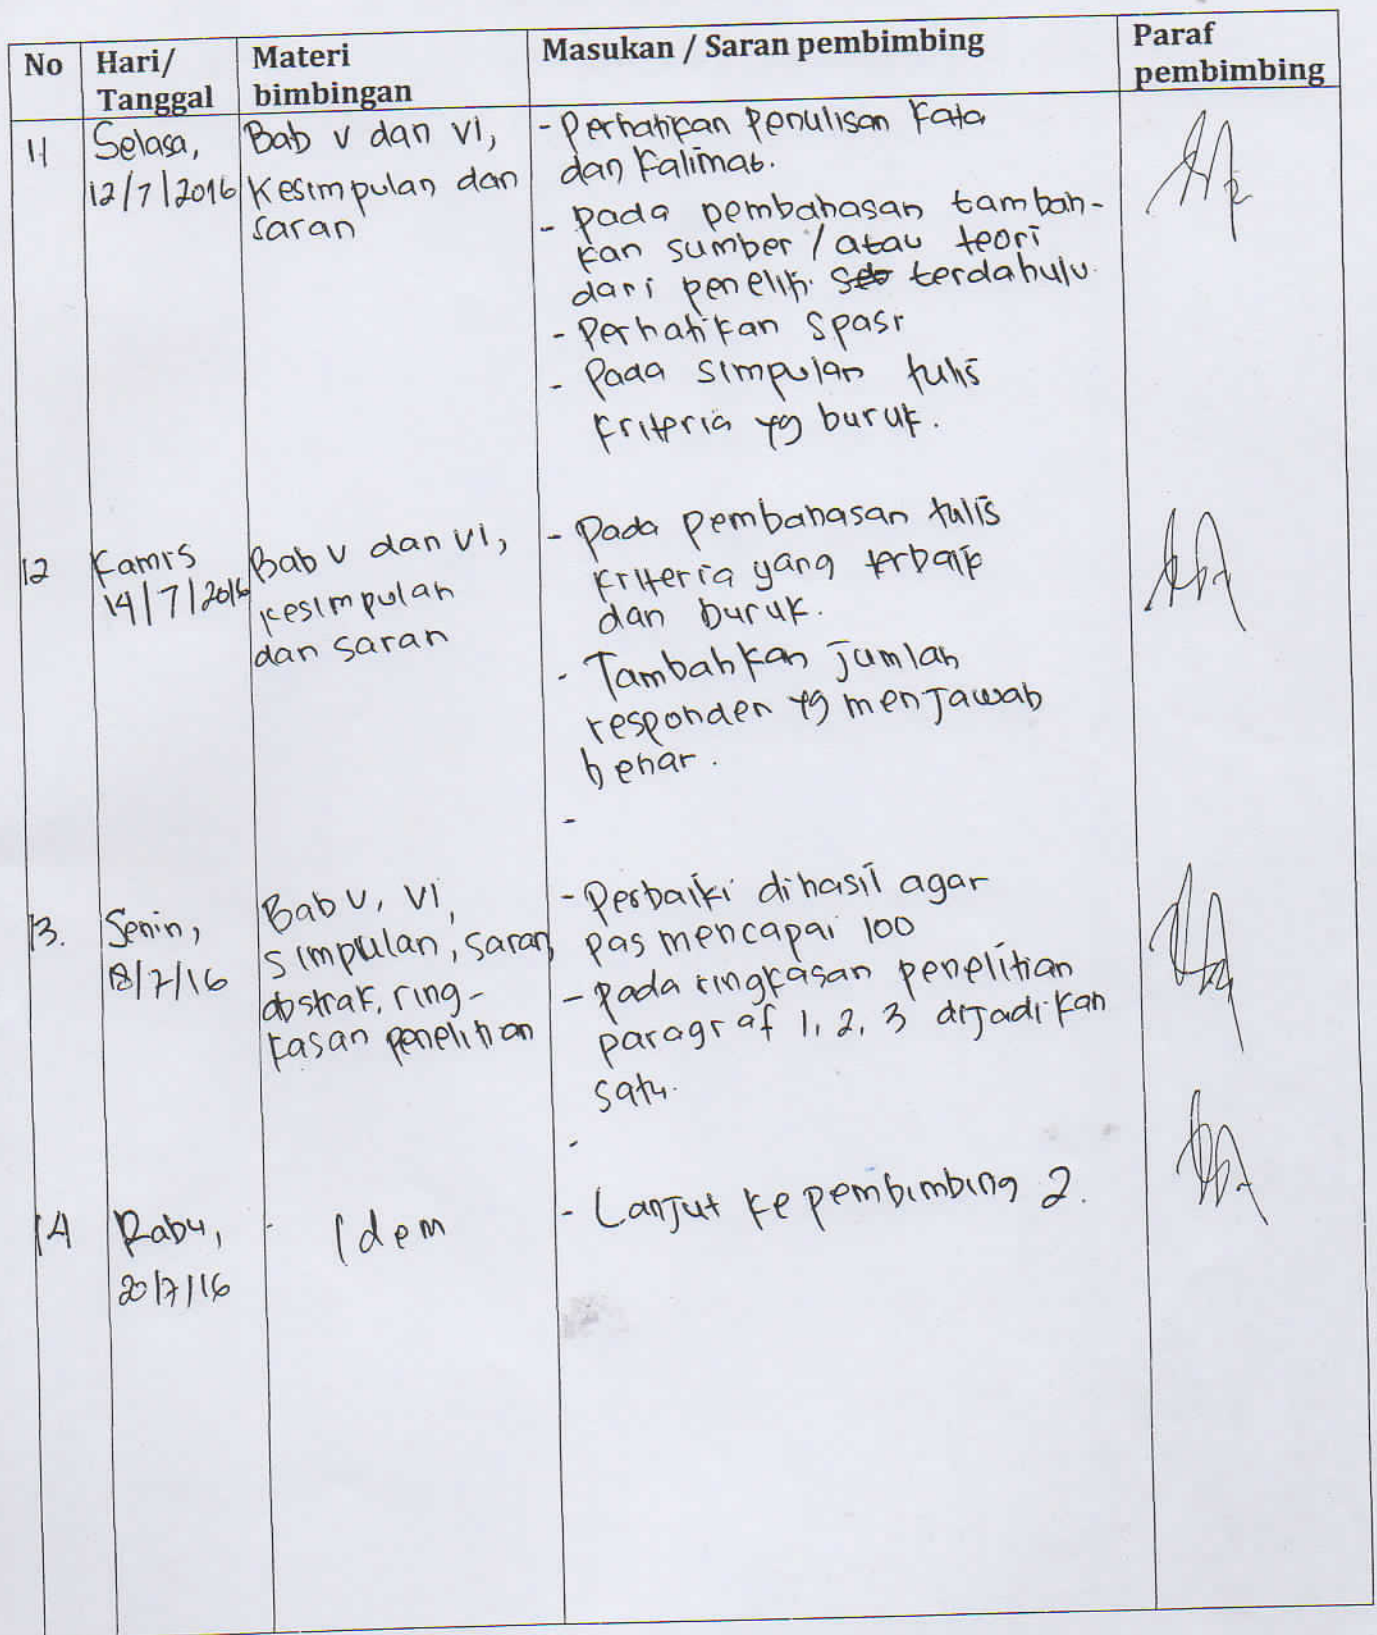 No Hari/ Tanggal Materi bimbingan Masukan / Saran pembimbing Paraf pembimbing
11 Selasa, 12/7/2016
Bab V dan VI,
Kesimpulan dan
saran
- Perhatikan Penulisan kata
dan kalimat.
- pada pembahasan tambah-
kan sumber / atau teori
dari peneliti terdahulu.
- Perhatikan spasi
- Pada simpulan tulis
kriteria yg buruk.
12 Kamis 14/7/2016
Bab V dan VI,
kesimpulan
dan saran
- Pada pembahasan tulis
kriteria yang terbaik
dan buruk.
- Tambahkan Jumlah
responden yg menjawab
benar.
-
13. Senin, 18/7/16
Bab V, VI,
simpulan, saran,
abstrak, ring-
kasan penelitian
- Perbaiki dihasil agar
pas mencapai 100
- pada ringkasan penelitian
paragraf 1, 2, 3 dijadikan
satu.
-
14 Rabu, 20/7/16
- Idem
- Lanjut ke pembimbing 2.